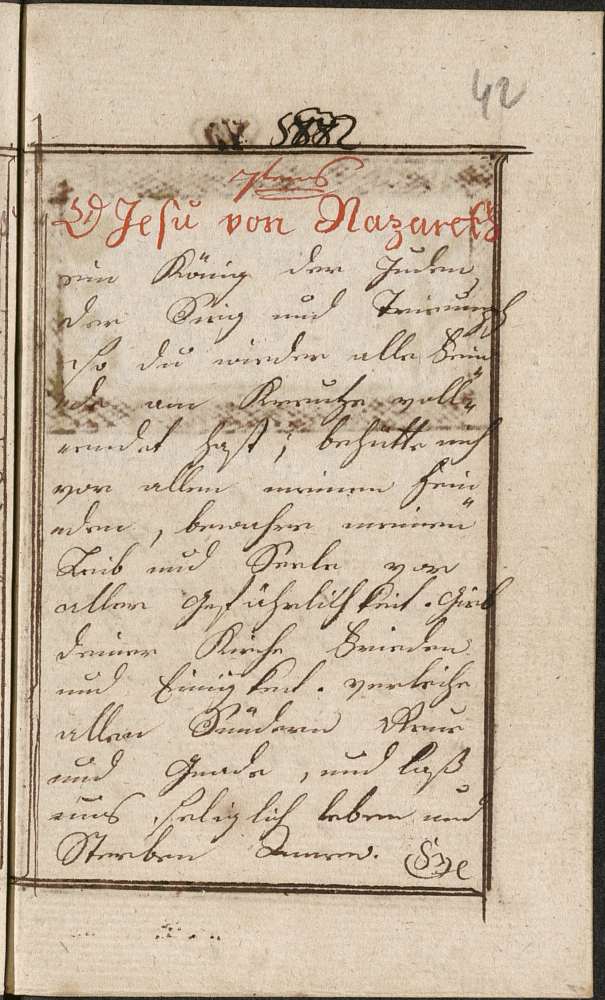 42
7tens
O Jesu von Nazareth
ein König der Juden
der Sieg und Triumph
so du wieder alle Fein
de am Kreutze voll=
endet hast; behütte mich
vor allen meinen Fein
den, bewahre meinen
Leib und Seele vor
aller Gefährlichkeit. Gieb
deiner Kirche Frieden
und Einigkeit. verleihe
allen Sündern Reue
und Gnade, und laß
uns seliglich leben und
Sterben Amen.